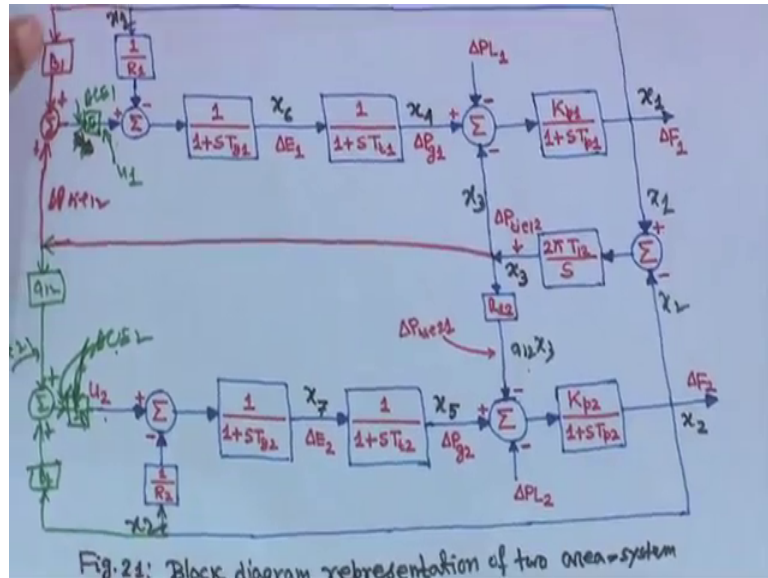 x1
B1
1/R1
ΔPL1
+
-
+
ACE1
+
-
Σ
Σ
1/1+STg1
x6
ΔE1
1/1+STt1
x4
ΔPg1
+
-
Σ
-
Kp1/1+STp1
x1
ΔF1
+
u1
ΔPtie12
x3
ΔPtie12
x3
2πT12/S
x1
+
Σ
-
x2
a12
a12
ΔPtie21
a12x3
ACE2
+
Σ
+
u2
+
Σ
-
1/1+STg2
x7
ΔE2
1/1+STt2
x5
ΔPg2
+
-
Σ
-
Kp2/1+STp2
ΔF2
x2
1/R2
x2
ΔPL2
Fig.21: Block diagram representation of two area-system